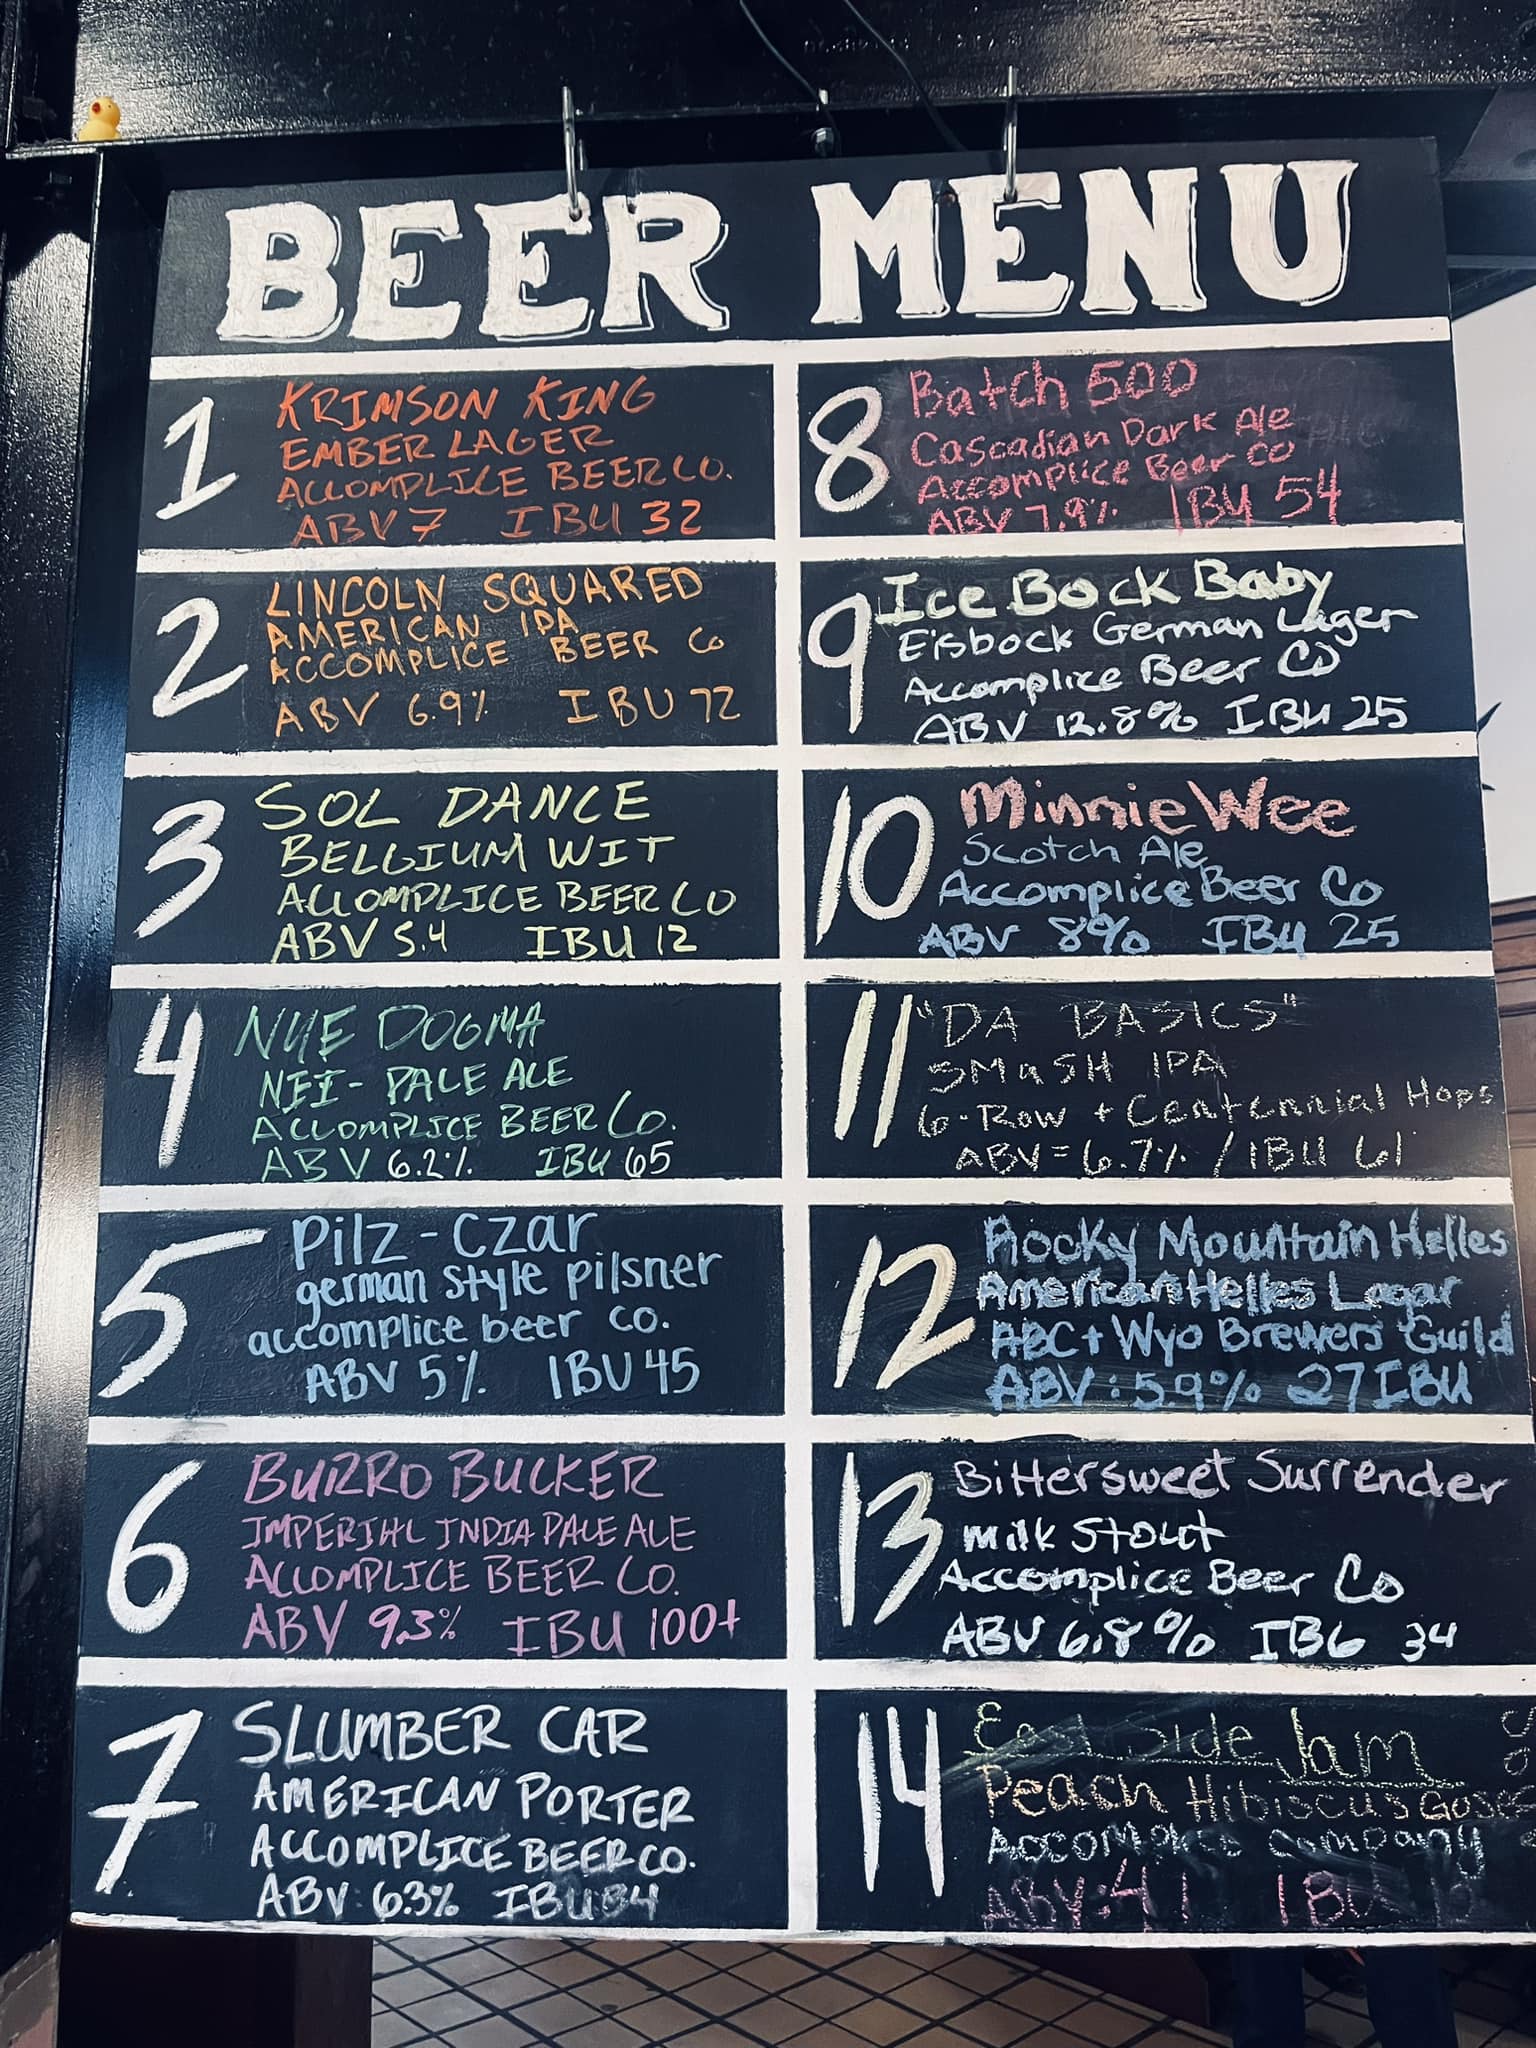 BEER MENU
1
KRIMSON KING
EMBER LAGER
ACCOMPLICE BEER CO.
ABV 7 IBU 32
2
LINCOLN SQUARED
AMERICAN IPA
ACCOMPLICE BEER Co
ABV 6.9% IBU 72
3
SOL DANCE
BELGIUM WIT
ACCOMPLICE BEER CO
ABV 5.4 IBU 12
4
NYE DOGMA
NEI- PALE ALE
ACCOMPLICE BEER Co.
ABV 6.2% IBU 65
5
Pilz - Czar
german style pilsner
accomplice beer co.
ABV 5% IBU 45
6
BURRO BUCKER
IMPERIAL INDIA PALE ALE
ACCOMPLICE BEER CO.
ABV 9.3% IBU 100+
7
SLUMBER CAR
AMERICAN PORTER
ACCOMPLICE BEER CO.
ABV: 6.3% IBU 34
8
Batch 500
Cascadian Dark Ale
Accomplice Beer Co
ABV 7.9% IBU 54
9
Ice Bock Baby
Eisbock German Lager
Accomplice Beer Co
ABV 12.8% IBU 25
10
Minnie Wee
Scotch Ale
Accomplice Beer Co
ABV 8% IBU 25
11
"DA BASICS"
SMaSH IPA
6-Row + Centennial Hops
ABV = 6.7% / IBU 61
12
Rocky Mountain Helles
American Helles Lagar
ABC + Wyo Brewers Guild
ABV: 5.9% 27 IBU
13
Bittersweet Surrender
milk Stout
Accomplice Beer Co
ABV 6.8% IB6 34
14
East Side Jam
Peach Hibiscus Gose
Company
ABV: 4.1 IBU